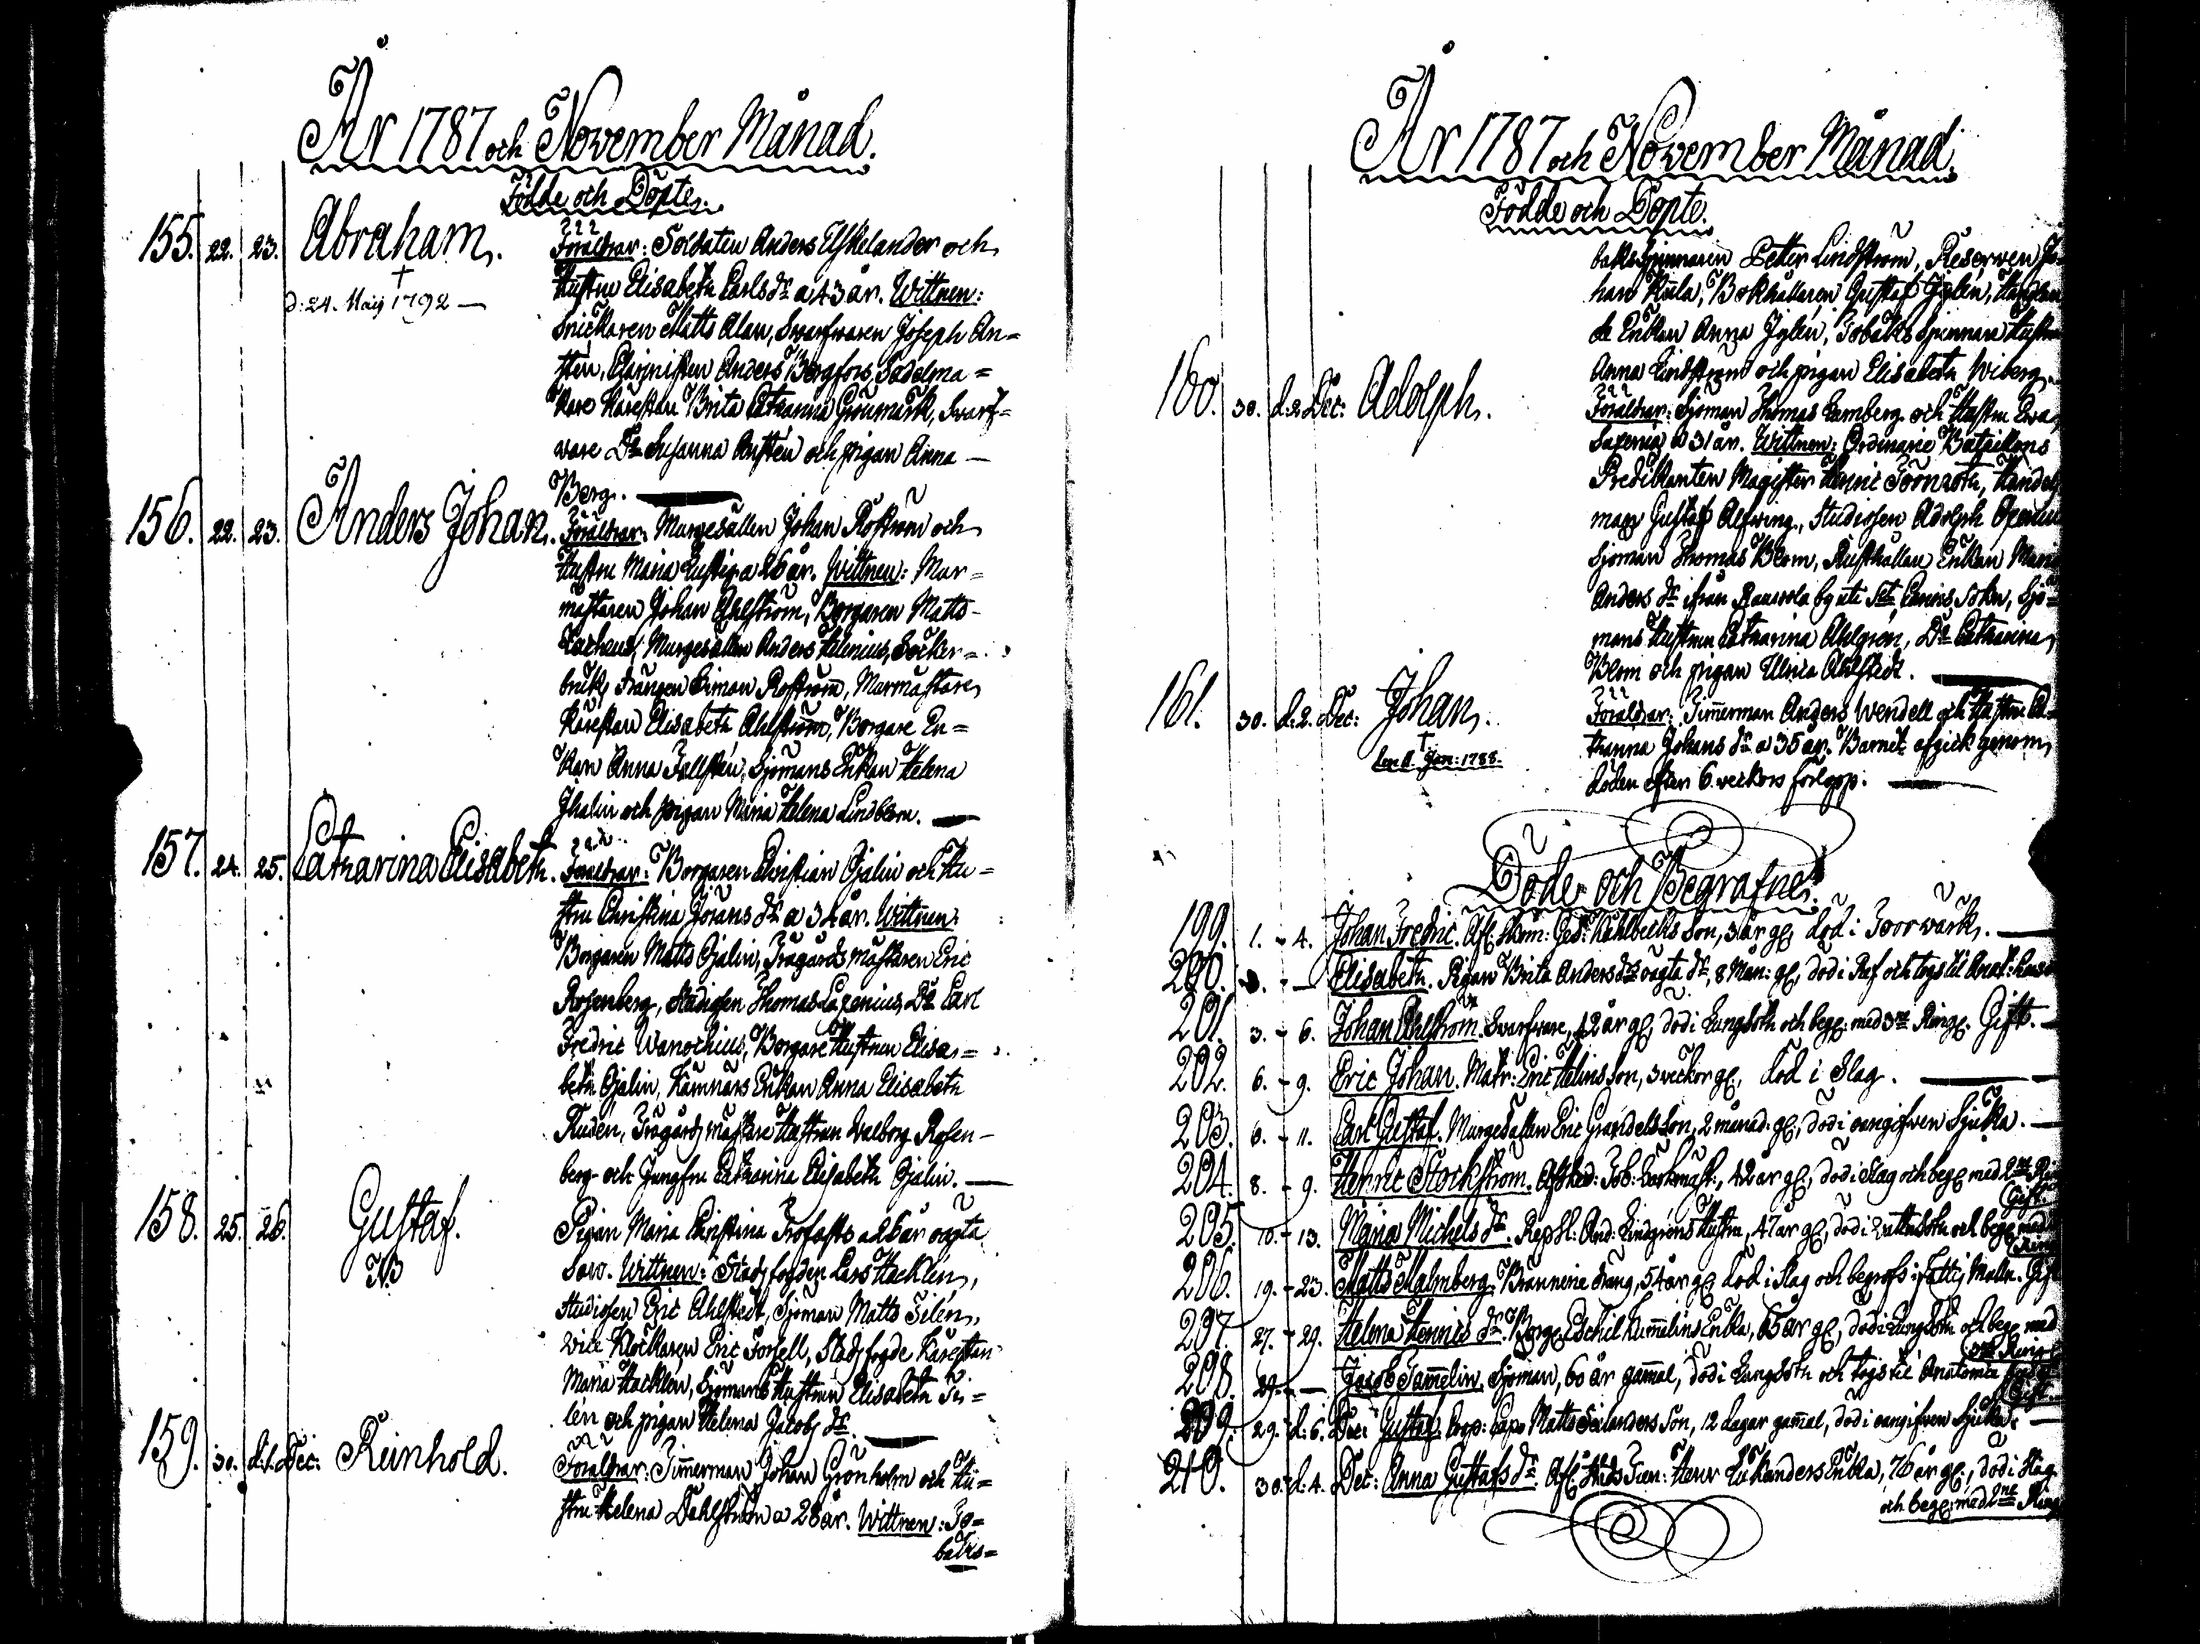 År 1787 och November Månad.
Födde och Döpte.
155. 22. 23. Abraham. Föräldrar: Soldaten Anders Elfkelander och
†
d: 24. Maij 1792 —
Hustru Elisabeth Carls dr a 43 år. Wittnen:
Snickaren Matts Alan, Swarfwaren Joseph An=
stén, Anders Bergfors Sadelma=
kare Kärestan Brita Catharina Grönmark, Swarf=
ware Do Susanna Anstén och pigan Anna —
Berg. —
156. 22. 23. Anders Johan. Föräldrar: Murgesällen Johan Roström och
Hustru Maria Lustig a 26 år. Wittnen: Mur=
mästaren Johan Ahlström, Borgaren Matts
Murgesällen Anders Helenius, Socker=
bruks Drängen Simon Roström, Murmästare
Kärestan Elisabeth Ahlström, Borgare En=
kan Anna Fallstén, Sjömans Enkan Helena
Thalin och pigan Maria Helena Lindblom. —
157. 24. 25. Catharina Elisabeth. Föräldrar: Borgaren Christian Ojalin och Hu=
stru Christina Jörans dr a 34 år. Wittnen:
Borgaren Matts Ojalin, Trägårds mästaren Eric
Rosenberg, Studiosen Thomas Laxenius, Do Carl
Fredric Wanochius, Borgare Hustrun Elisa=
beth Ojalin, Kämnärs Enkan Anna Elisabeth
Rudén, Trägårds mästare Hustrun Walborg Rosen-
berg och Jungfru Catharina Elisabeth Ojalin. —
158. 25. 26. Gustaf. Pigan Maria Christina Trofasts a 26 år oägta
NB
Son. Wittnen: Stads fogden Lars Hacklén,
Studiosen Eric Ahlstedt, Sjöman Matts Silén,
Vice Klockaren Eric Forsell, Stads fogde Kärestan
Maria Hacklén, Sjömans Hustrun Elisabeth Si=
lén och pigan Helena Jacobs dr. —
159. 30. d. 1. Dec: Reinhold. Föräldrar: Timmerman Johan Grönholm och Hu=
stru Helena Dahlström a 28 år. Wittnen: To=
baks=
År 1787 och November Månad.
Födde och Döpte.
baks Spinnaren Petter Lindström, Reserven Jo-
han Kula, Bokhållaren Gustaf Jylén, Handlan
de Enkan Anna Jylén, Tobaks Spinnare Hustru
Anna Lindström och pigan Elisabeth Wiberg.
160. 30. d. 2 Dec: Adolph. Föräldrar: Sjöman Thomas Lamberg och Hustru Eva
a 31 år. Wittnen: Ordinarie Bataillons
Predikanten Magister Henric Törnroth, Handels
man Gustaf Alfwing, Studiosen Adolph
Sjöman Thomas Blom, Rusthållare Enkan Maria
Anders dr ifrån by uti St Carins Sokn, Sjö=
mans Hustrun Catharina Ahlgrén, Do Catharina
Blom och pigan Ulrica Ahlstedt. —
161. 30. d. 2. Dec: Johan. Föräldrar: Timmerman Anders Wendell och Hustru Ca-
†
den 11. Jan: 1788.
tharina Johans dr a 35 år. Barnet afgick genom
döden efter 6. veckors förlopp. —
Döde och Begrafne.
199. 1. - 4. Johan Fredric. Kahlbecks Son, 3 år gl. död i Torrwärk. —
200. - — Elisabeth. Pigan Brita Anders drs oägta dr, 8 Mån: gl, död i Ref och togs til
201. 3. - 6. Johan Ahlström. Swarfware, 42 år gl, död i Lungsoth och begr: med 3ne Ring. Gift. —
202. 6. - 9. Eric Johan. Matr: Eric Helins Son, 3 veckor gl, död i Slag. —
203. 6. - 11. Carl Gustaf. Murgesällen Eric Grandels Son, 2 månad: gl, död i oangifwen Sjukla. —
204. 8. - 9. Henric Stockström. Afsked: 42 år gl, död i Slag och begr med 2ne Rin
Gift.
205. 10. - 13. Maria Michels dr. Repsl: And: Lindgrens Hustru, 47 år gl, död i Wattusoth och begr. med
Ring
206. 19. - 23. Matts Malmberg. Bränneri Dräng, 54 år gl. död i Slag och begrofs i Fattig Mulln. Gift
207. 27. - 29. Helena Henrics dr. Borg. Eschil Kumelins Enka, 65 år gl, död i Lungsoth och begr. med
Ring.
208. 29. - — Jacob Tamelin. Sjöman, 60 år gamal, död i Lungsoth och togs til Anatomie
Gift.
209. 29. d: 6. Dec: Gustaf. Matts Son, 12 dagar gamal, död i oangifwen Sjukla. —
210. 30. d: 4. Dec: Anna Gustafs dr. Enka, 76 år gl, död i Slag
och begr. med 2ne Ring